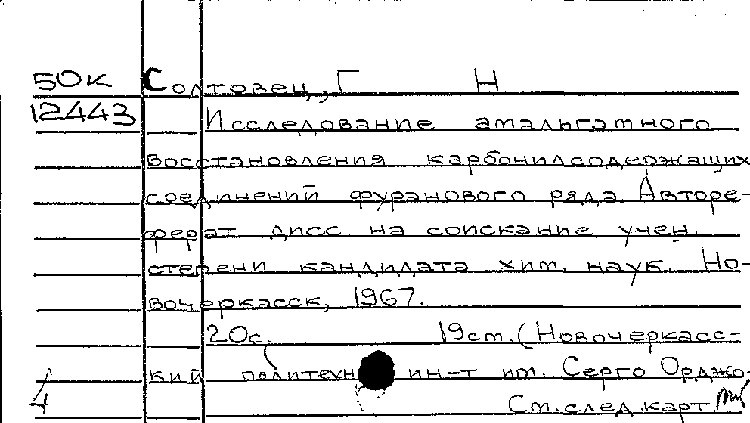 50к Солтовец, Г Н
12443 Исследование амальгамного
восстановления карбонилсодержащих
соединений фуранового ряда. Авторе-
ферат дисс. на соискание учен.
степени кандидата хим. наук. Но-
вочеркасск, 1967.
20с. 19см. (Новочеркасс-
кий политехн ин-т им. Серго Орджо-
4 См. след. карт.